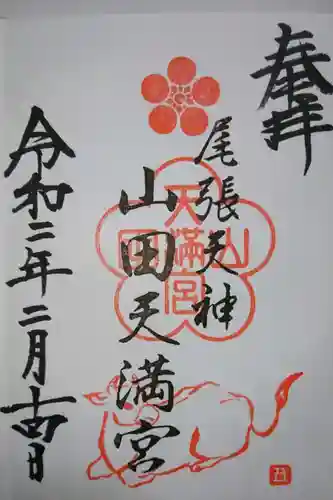 奉拝
尾張天神
山田天満宮
山田天満宮
令和二年二月十四日
丑